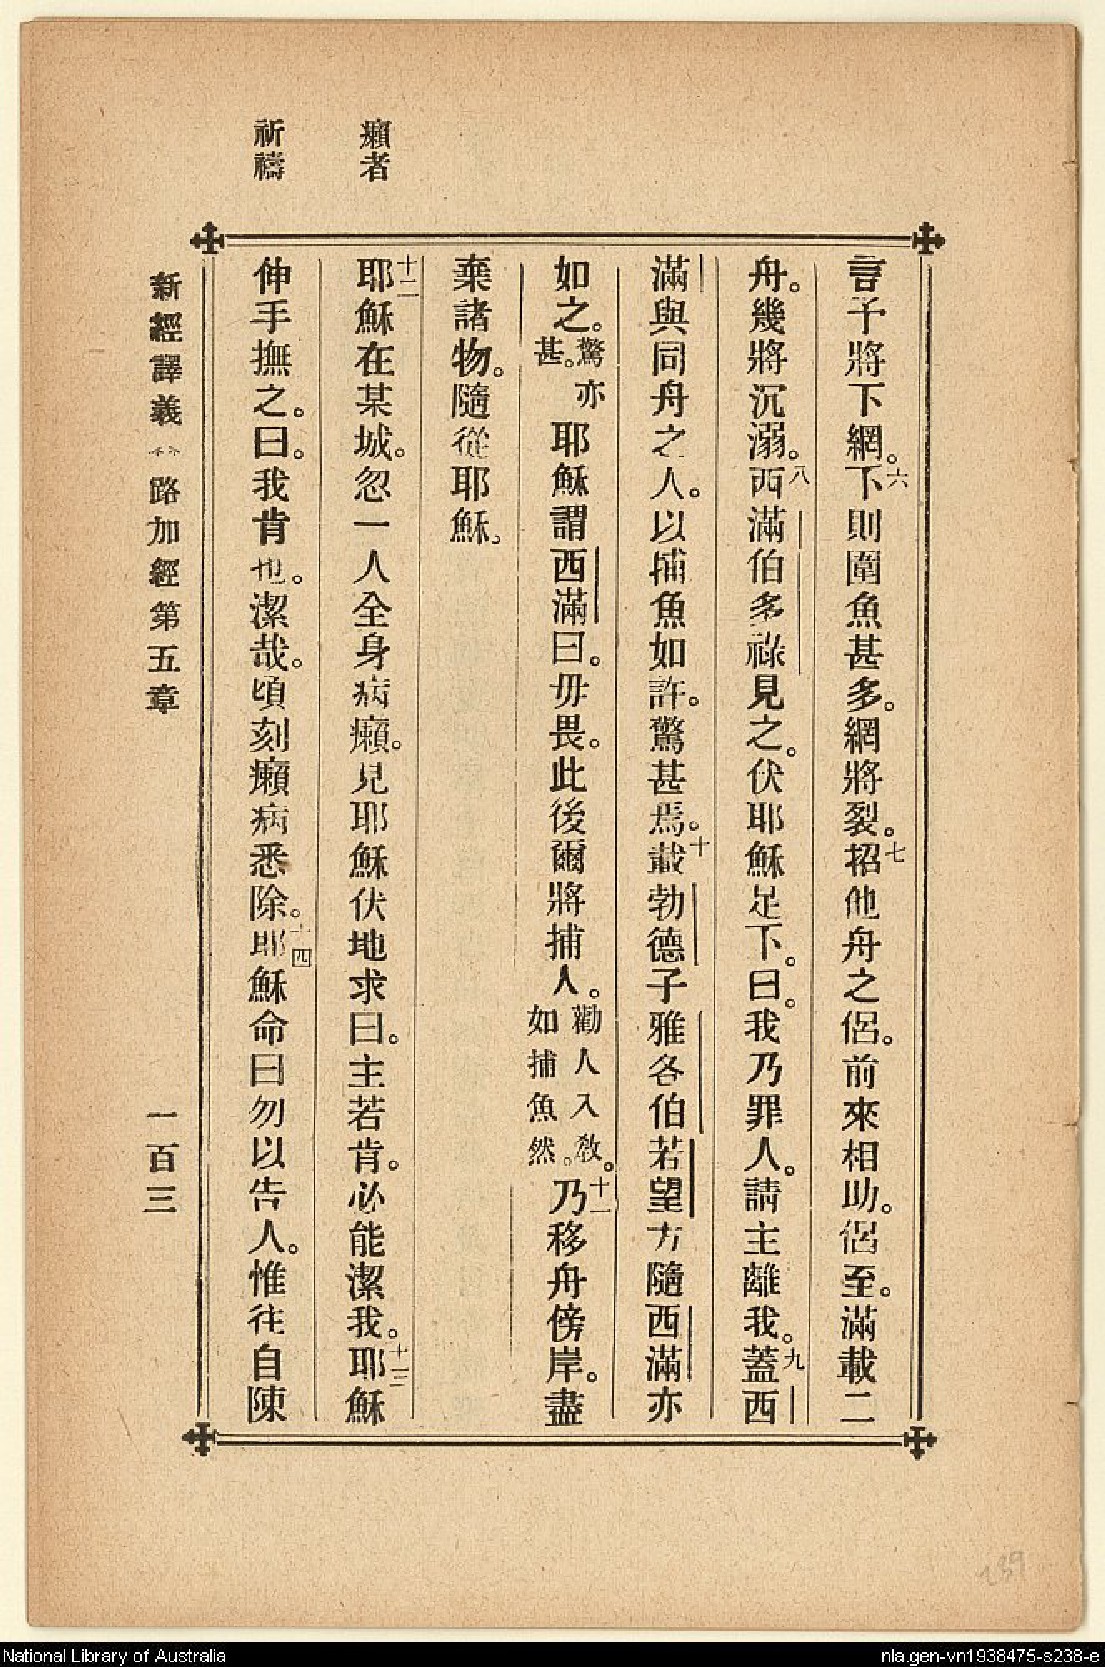 癩者
祈禱
言予將下網。六下則圍魚甚多。網將裂。七招他舟之侶。前來相助。侶至。滿載二
舟。幾將沉溺。八西滿伯多祿見之。伏耶穌足下。曰。我乃罪人。請主離我。九蓋西
滿與同舟之人。以捕魚如許。驚甚焉。十載勃德子雅各伯若望方隨西滿亦
如之。驚亦甚。耶穌謂西滿曰。毋畏。此後爾將捕人。勸人入教。如捕魚然。十一乃移舟傍岸。盡
棄諸物。隨從耶穌。
十二耶穌在某城。忽一人全身病癩。見耶穌伏地求曰。主若肯。必能潔我。十三耶穌
伸手撫之。曰。我肯也。潔哉。頃刻癩病悉除。十四耶穌命曰勿以告人。惟往自陳
新經譯義 路加經第五章 一百三
239
National Library of Australia
nla.gen-vn1938475-s238-e